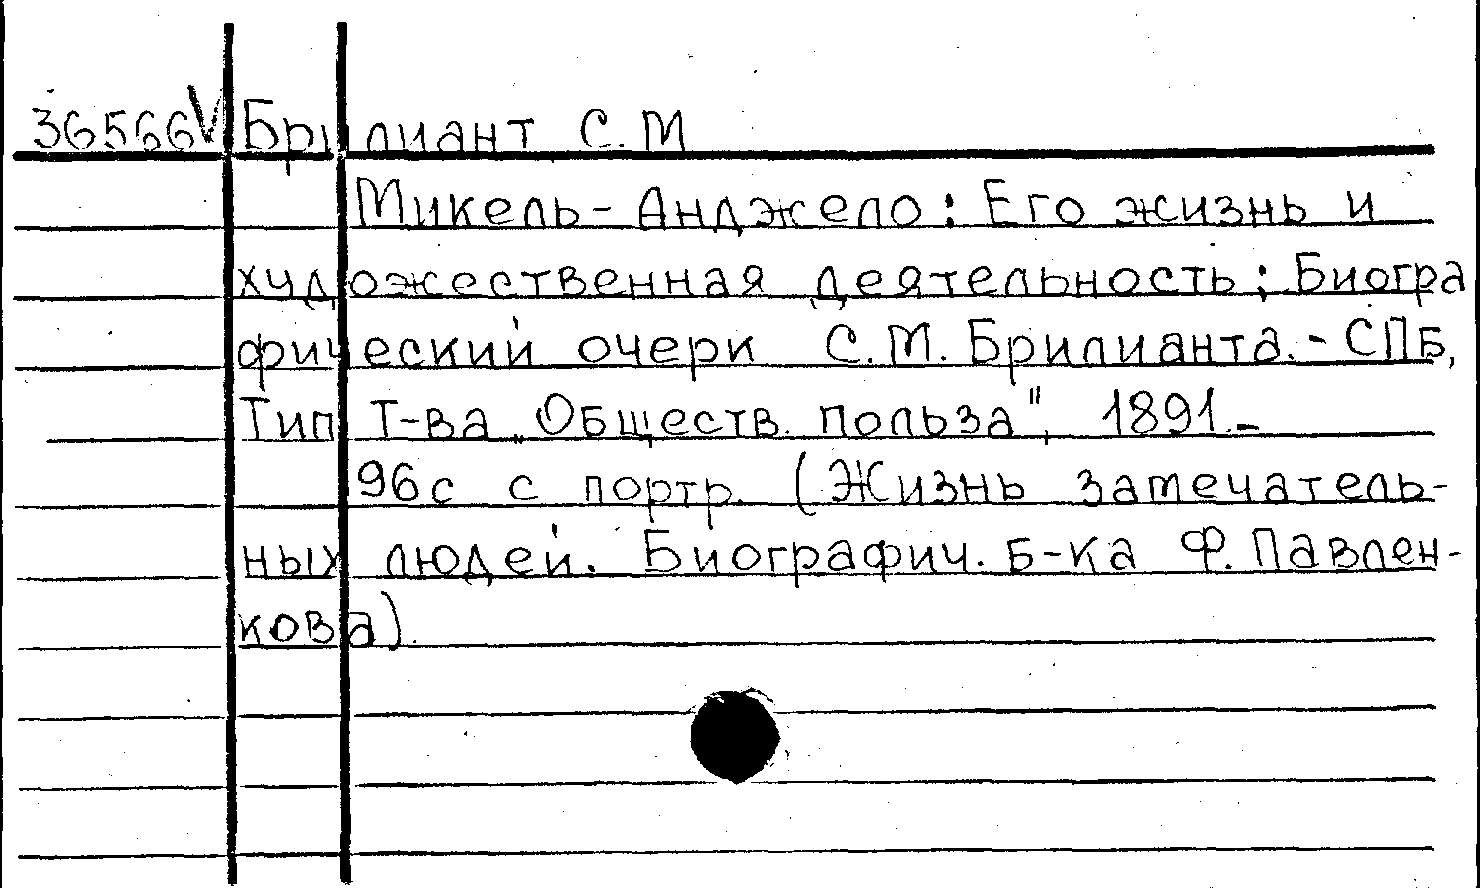 36566V Брилиант С.М
Микель-Анджело: Его жизнь и
художественная деятельность: Биогра
фический очерк С.М. Брилианта.- СПБ,
Тип Т-ва „Обществ. польза", 1891.-
96с с портр. (Жизнь замечатель-
ных людей. Биографич. Б-ка Ф. Павлен-
кова).